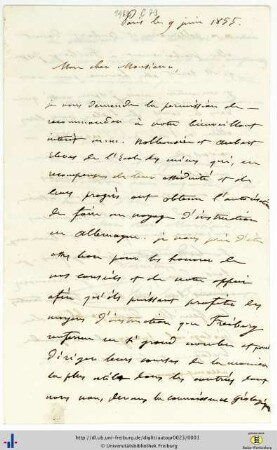 Paris le 9 juin 1855.
Mon cher Monsieur,
je vous demande la permission de
recommander à votre bienveillant
intérêt MM. et
élèves de l'École des mines qui, en
récompense de leur assiduité et de
leurs progrès ont obtenu l'autorisation
de faire un voyage d'instruction
en Allemagne. je vous prie d'être
assez bon pour les
vos conseils et de votre appui
afin qu'ils puissent profiter des
moyens d'instruction que Freiberg
renferme en si grand nombre et pour
diriger leurs courses de la manière
la plus utile dans les contrées dont
nous vous devons la connaissance géologique
http://dl.ub.uni-freiburg.de/diglit/autogr0023/0001
© Universitätsbibliothek Freiburg